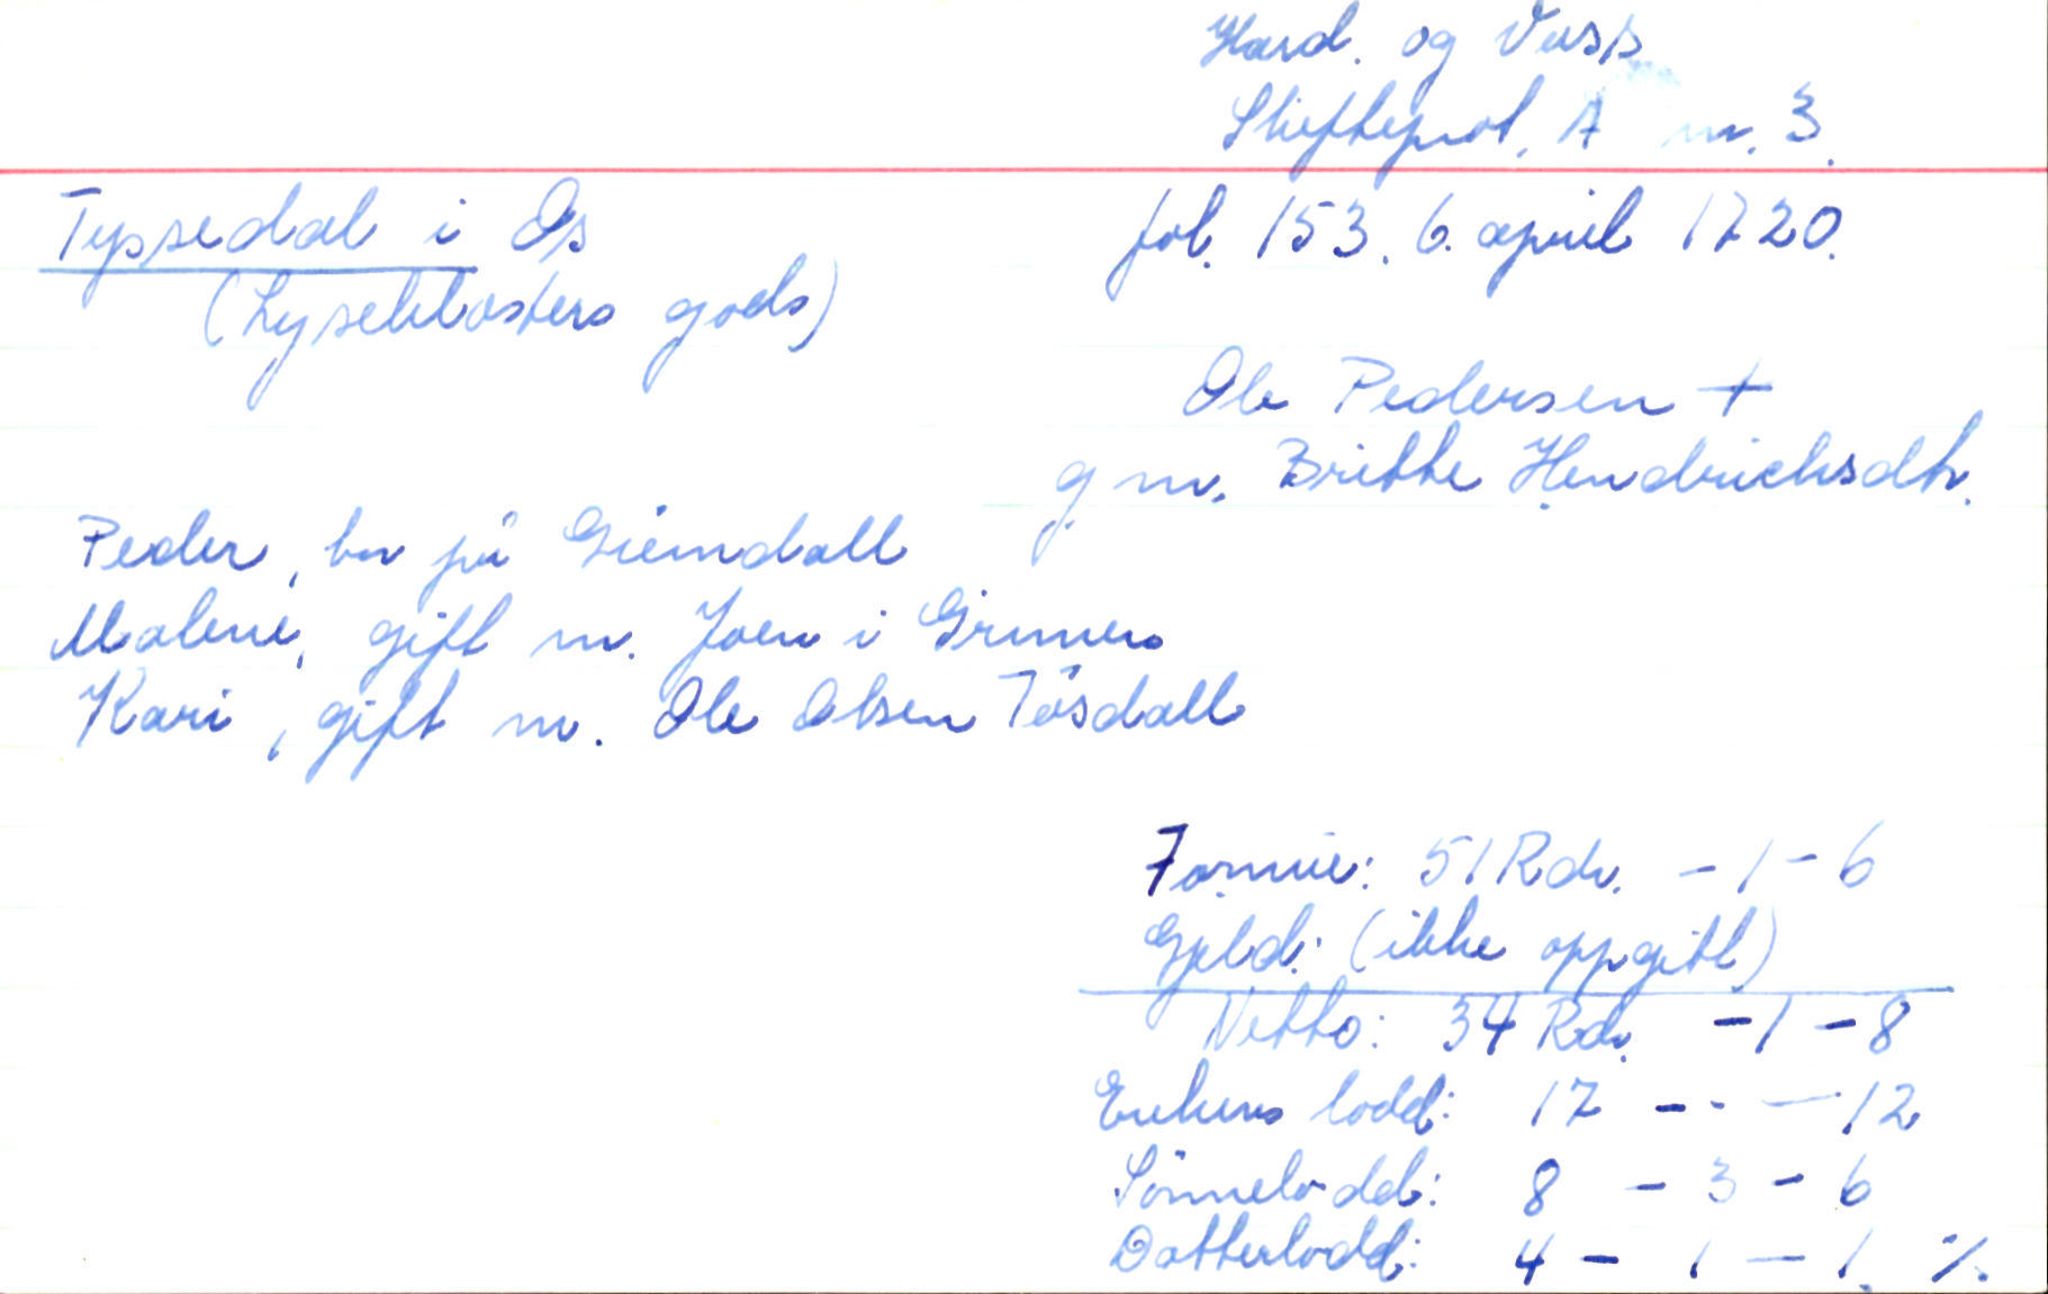 Hard. og Voss
Skifteprot. A nr. 3.
Tyssedal i Os
fol. 153. 6. april 1720.
(Lyseklosters gods)
Ole Pedersen +
g m. Britte Hendrichsdtr.
Peder, bor på Giemdall
Malene, gift m. Joen i Grimen
Kari, gift m. Ole Olsen Tösdall
Formue: 51 Rdr. - 1 - 6
Gjeld: (ikke oppgitt)
Netto: 34 Rdr. - 1 - 8
Enkens lodd: 17 - - - 12
Sönnelodd: 8 - 3 - 6
Datterlodd: 4 - 1 - 1. ٪